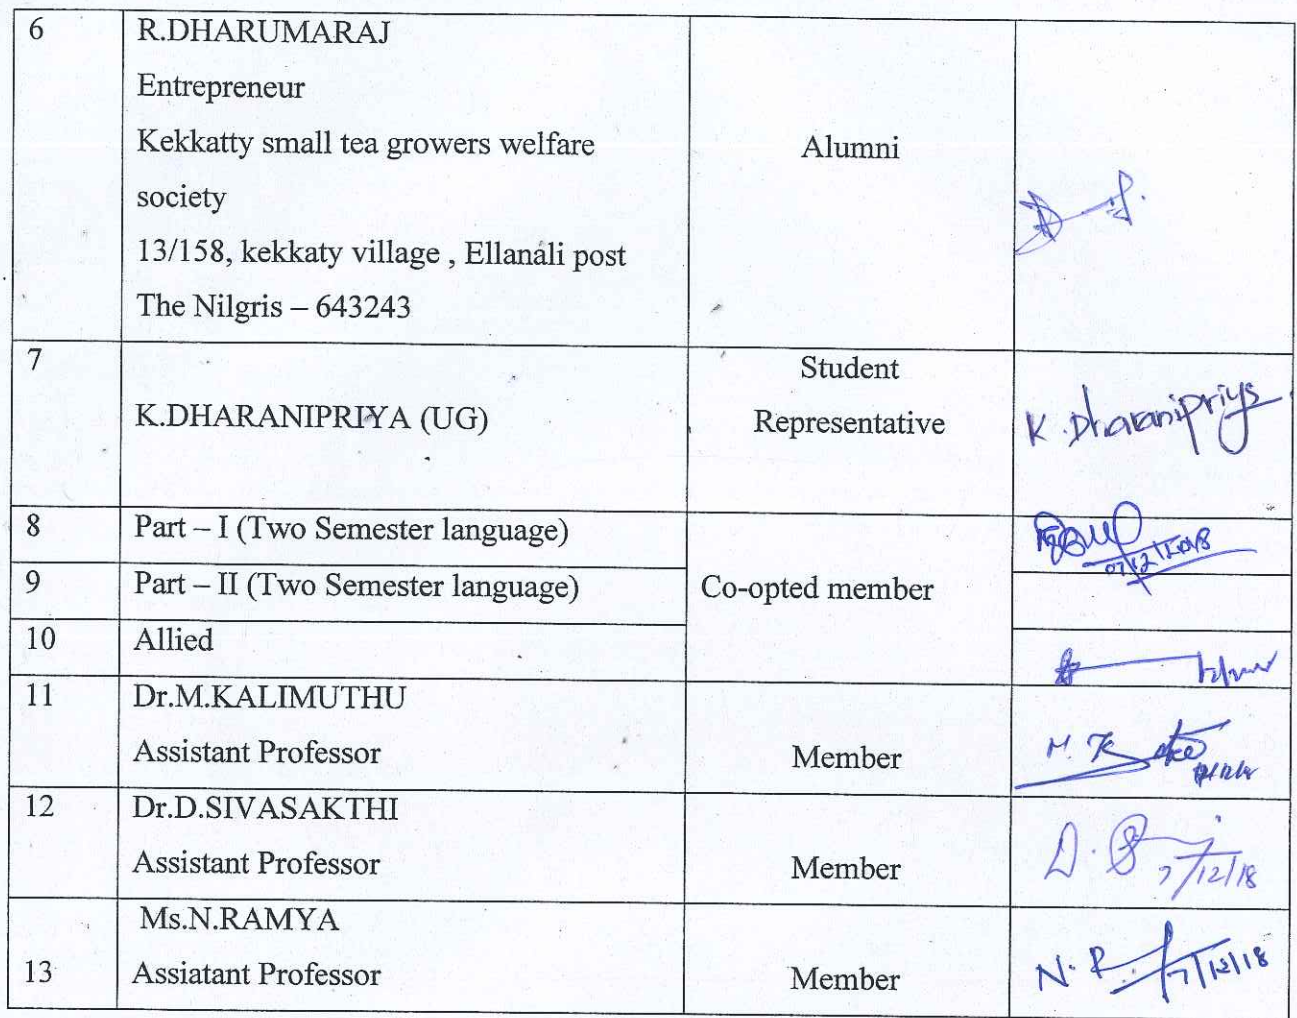 6
R.DHARUMARAJ
Entrepreneur
Kekkatty small tea growers welfare
society
13/158, kekkaty village , Ellanali post
The Nilgris – 643243
Alumni
7
K.DHARANIPRIYA (UG)
Student
Representative
K.Dharanipriya
8
Part – I (Two Semester language)
07/12/2018
9
Part – II (Two Semester language)
Co-opted member
10
Allied
11
Dr.M.KALIMUTHU
Assistant Professor
Member
M. K
12
Dr.D.SIVASAKTHI
Assistant Professor
Member
D. S
7/12/18
13
Ms.N.RAMYA
Assiatant Professor
Member
N. R
7/12/18